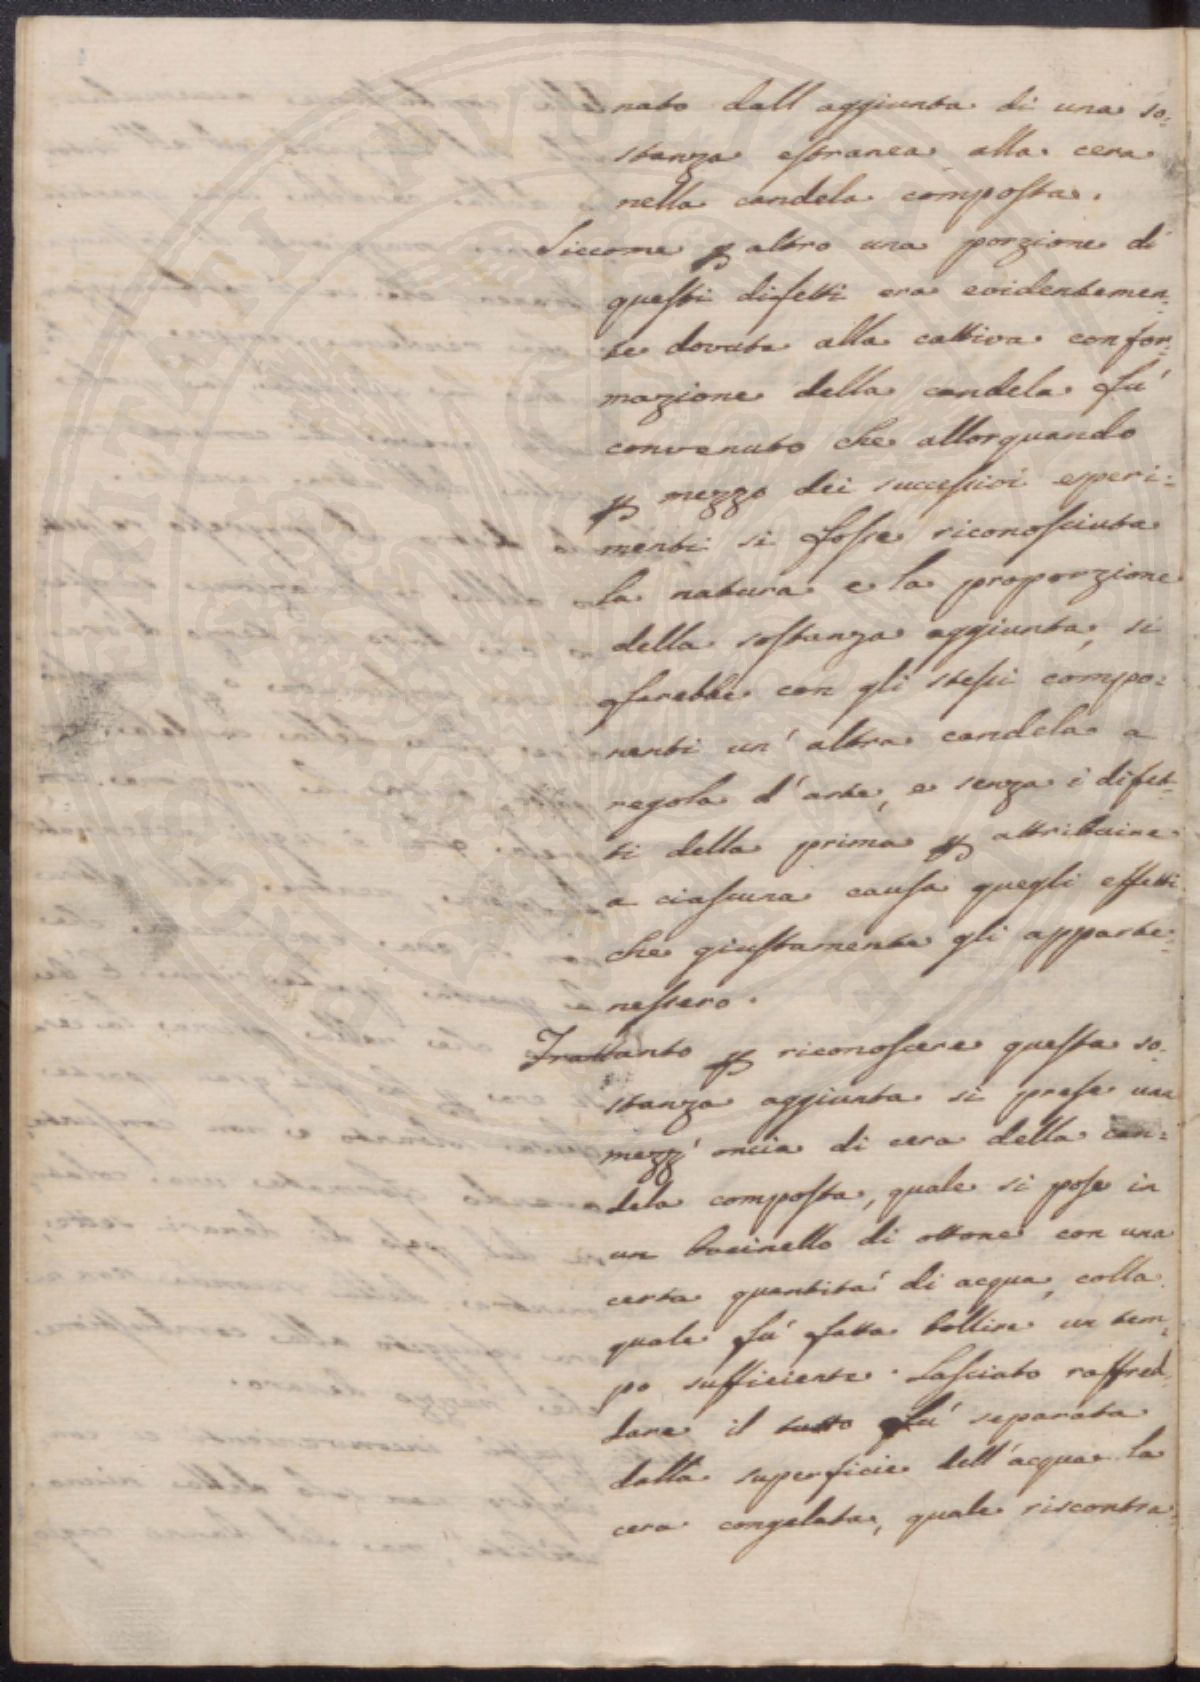 nato dall aggiunta di una so-
stanza estranea alla cera
nella candela composta.
Siccome p altro una porzione di
questi difetti era evidentemen-
te dovuta alla cattiva confor-
mazione della candela fu'
convenuto che allorquando
p mezzo dei successivi esperi-
menti si fosse riconosciuta
la natura e la proporzione
della sostanza aggiunta, si
farebbe con gli stessi compo-
nenti un' altra candela a
regola d'arte, e senza i difet-
ti della prima p attribuire
a ciascuna causa quegli effetti
che giustamente gli apparte-
nessero.
Frattanto p riconoscere questa so-
stanza aggiunta si prese una
mezz' oncia di cera della can-
dela composta, quale si pose in
un bacinello di ottone con una
certa quantita' di acqua, colla
quale fu' fatta bollire un tem-
po sufficiente. Lasciato raffred-
dare il tutto fu' separata
dalla superficie dell'acqua la
cera congelata, quale riscontra-